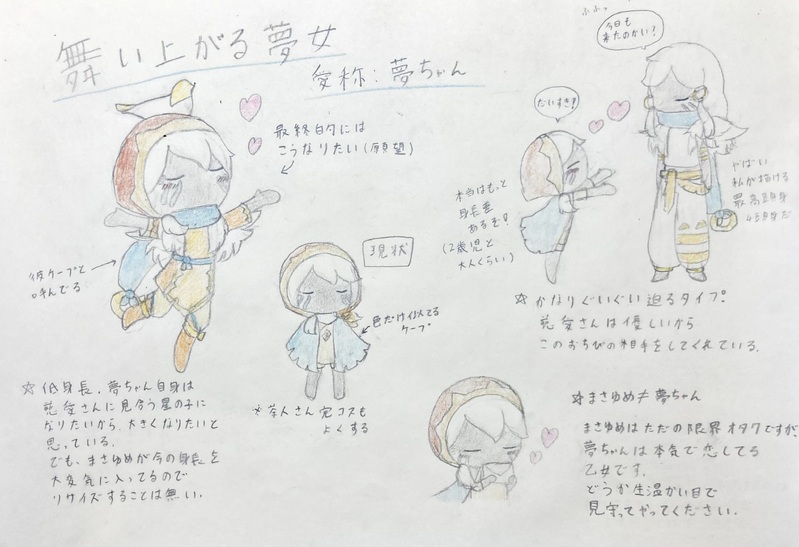 舞い上がる夢女
愛称:夢ちゃん
最終的には
こうなりたい(願望)
彼ケープと
呼んでる
現状
色だけ似てる
ケープ
※茶人さん完コスも
よくする
☆低身長。夢ちゃん自身は
花愛さんに見合う星の子に
なりたいから、大きくなりたいと
思っている。
でも、まさゆめが今の身長を
大変気に入ってるので
リサイズすることは無い。
ふふっ
今日も
来たのかい?
だいすき!
本当はもっと
身長差
あるぞ!
(2歳児と
大人くらい)
やばい
私が描ける
最高頭身
4頭身だ
☆かなりぐいぐい迫るタイプ。
花愛さんは優しいから
このおちびの相手をしてくれている。
☆まさゆめ≠夢ちゃん
まさゆめはただの限界オタクですが、
夢ちゃんは本気で恋してる
乙女です。
どうか生温かい目で
見守ってやってください。